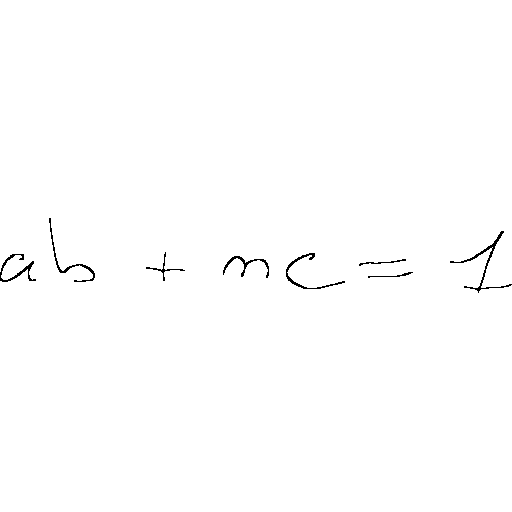 ab + mc = 1